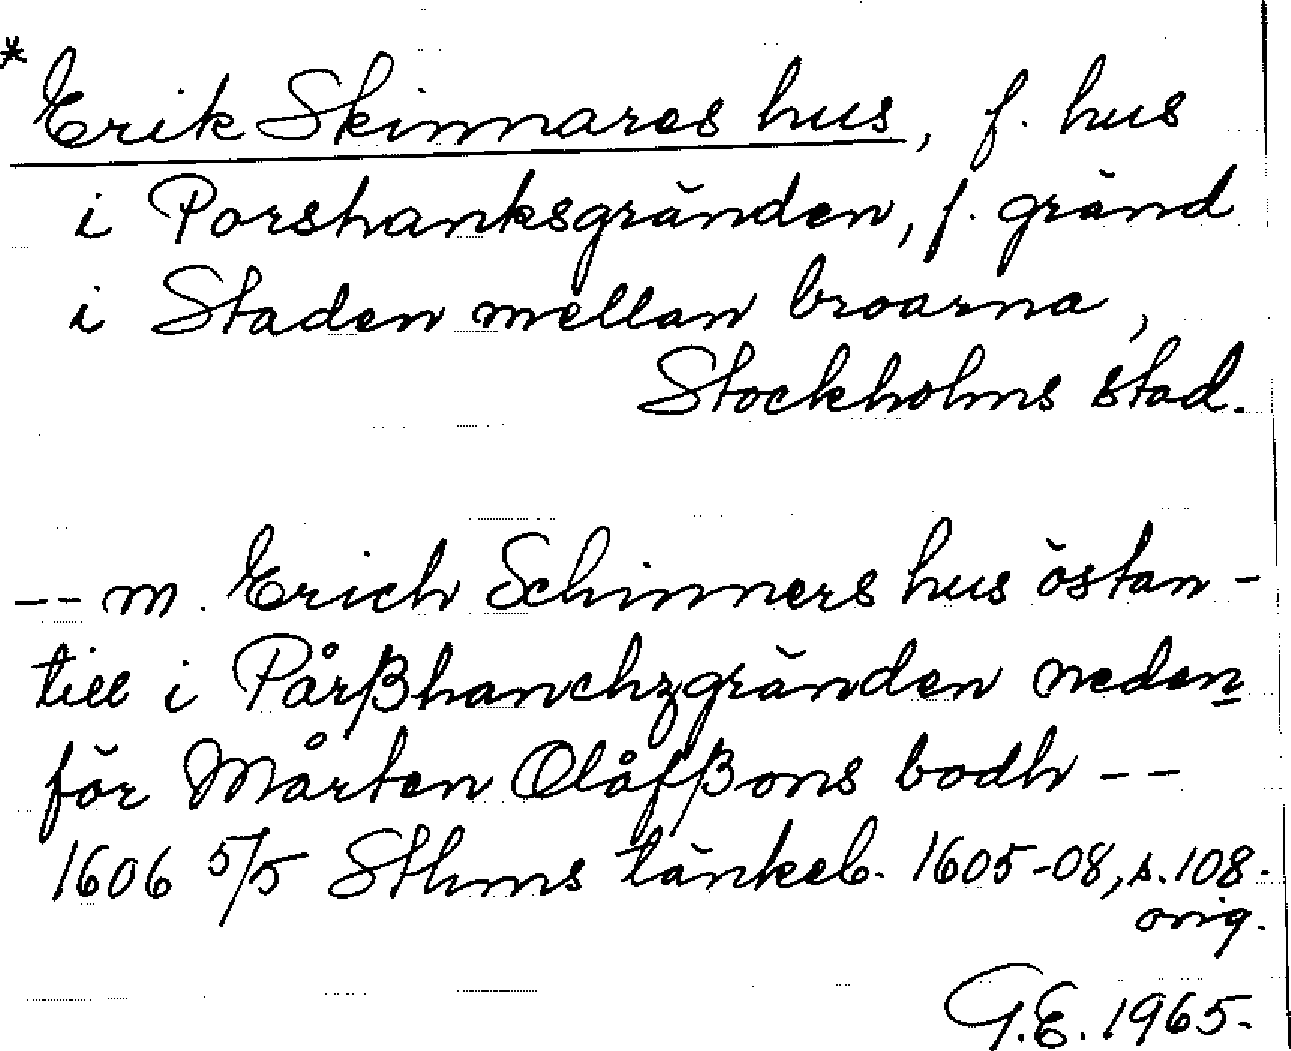 * Erik Skinnares hus, f. hus
i Porshanksgränden, f. gränd
i Staden mellan broarna,
Stockholms stad.
-- m. Erich Schinners hus östan-
till i Pårßhanchzgränden neden
för Mårten Olåfßons bodh --
1606 5/5 Sthms tänkeb. 1605-08, s. 108.
orig.
G.E. 1965.